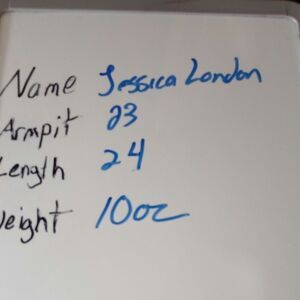 Name Jessica London
Armpit 23
Length 24
Weight 10oz